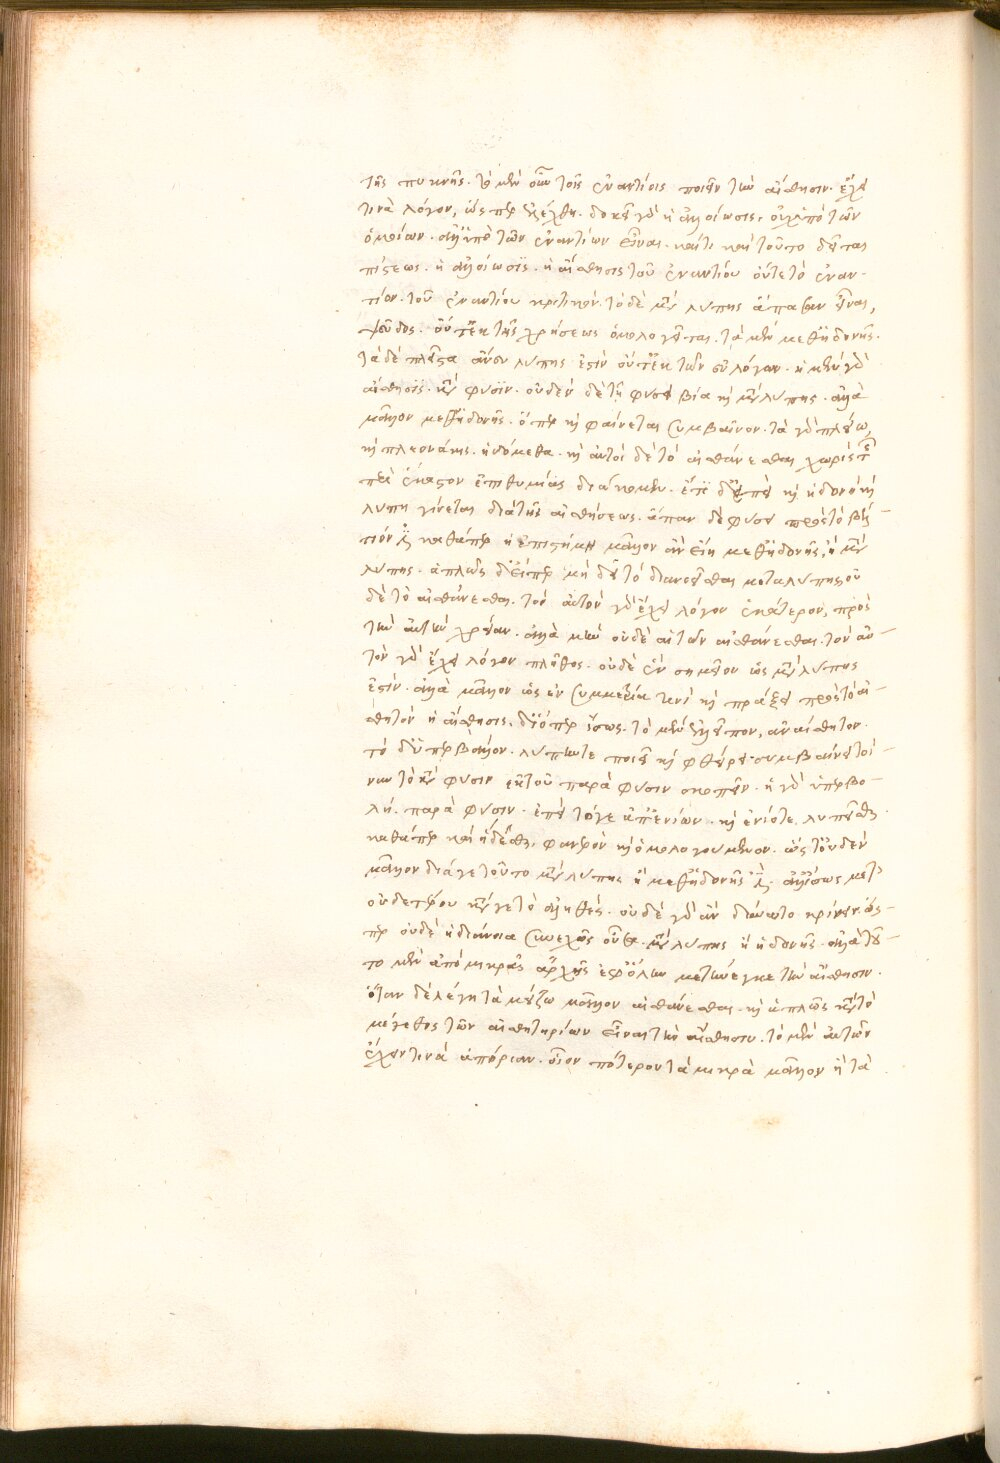 τῆς πυκνῆς. τὸ μὲν οὖν τοῖς ἐναντίοις ποιεῖν τὴν αἴσθησιν. ἔχει
τινὰ λόγον, ὥσπερ ἐλέχθη. δοκεῖ γὰρ ἡ ἀλλοίωσις. οὐχ ὑπὸ τῶν
ὁμοίων. ἀλλ' ὑπὸ τῶν ἐναντίων εἶναι. καίτοι καὶ τοῦτο δεῖται
πίστεως. ἡ ἀλλοίωσις. ἡ αἴσθησις τοῦ ἐναντίου οὔτε τὸ ἐναν-
τίον. τοῦ ἐναντίου κριτικόν. τὸ δὲ μετὰ λύπης ἅπασαν εἶναι,
ψεῦδος. οὔτ' ἐκ τῆς χρήσεως ὁμολογεῖται. τὰ μὲν μεθ' ἡδονῆς.
τὰ δὲ πλεῖστα ἄνευ λύπης ἐστὶν οὔτ' ἐκ τῶν εὐλόγων. ἡ μὲν γὰρ
αἴσθησις. κατὰ φύσιν. οὐδὲν δὲ τῇ φύσει βίᾳ καὶ μετὰ λύπης. ἀλλὰ
μᾶλλον μεθ' ἡδονῆς. ὅπερ καὶ φαίνεται συμβαῖνον. τὰ γὰρ πλείω,
καὶ πλεονάκις. ἡδόμεθα. καὶ αὐτοὶ δὲ τὸ αἰσθάνεσθαι χωρὶς τῆς
περὶ ἕκαστον ἐπιθυμίας διώκομεν. ἔτι δ' ἐπεὶ καὶ ἡδονὴ καὶ
λύπη γίνεται διὰ τῆς αἰσθήσεως. ἅπαν δὲ φύσει πρὸς τὸ βέλ-
τιόν ἐστι καθάπερ ἡ ἐπιστήμη μᾶλλον ἂν εἴη μεθ' ἡδονῆς, ἢ μετὰ
λύπης. ἁπλῶς δ' εἴπερ μὴ δὲ τὸ διανοεῖσθαι μετὰ λύπης οὐ
δὲ τὸ αἰσθάνεσθαι. τὸν αὐτὸν γὰρ ἔχει λόγον ἑκάτερον, πρὸς
τὴν αὐτὴν χρείαν. ἀλλὰ μὴν οὐδὲ αἱ τῶν αἰσθάνεσθαι. τὸν αὐ-
τὸν γὰρ ἔχει λόγον πλῆθος. οὐδὲ ἓν σημεῖον ὡς μετὰ λύπης
ἐστίν. ἀλλὰ μᾶλλον ὡς ἐν συμμετρίᾳ τινὶ καὶ πράξει πρὸς τὸ αἰ-
σθητὸν ἡ αἴσθησις. διόπερ ἴσως. τὸ μὲν ἐλλεῖπον, ἀναίσθητον.
τὸ δ' ὑπερβάλλον. λύπην τε ποιεῖ καὶ φθείρει. συμβαίνει τοί
νυν τὸ κατὰ φύσιν ἐκ τοῦ παρὰ φύσιν σκοπεῖν. ἡ γὰρ ὑπερβο-
λή. παρὰ φύσιν. ἐπεὶ τό γε ἀπ' ἐνίων. καὶ ἐνίοτε λυπεῖσθαι.
καθάπερ καὶ ἥδεσθαι, φανερὸν καὶ ὁμολογούμενον. ὥστ' οὐδὲν
μᾶλλον διά γε τοῦτο μετὰ λύπης ἢ μεθ' ἡδονῆς ἐστι. ἀλλ' ἴσως μετ'
οὐδετέρου κατά γε τὸ ἀληθές. οὐδὲ γὰρ ἂν δύναιτο κρίνειν. ὥς-
περ οὐδὲ ἡ διάνοια συνεχῶς οὖσα μετὰ λύπης ἢ ἡδονῆς. ἀλλὰ τοῦ-
το μὲν ἀπὸ μικρᾶς ἀρχῆς ἐφ' ὅλην μετήνεγκε τὴν αἴσθησιν.
ὅταν δὲ λέγῃ τὰ μείζω μᾶλλον αἰσθάνεσθαι. καὶ ἁπλῶς κατὰ τὸ
μέγεθος τῶν αἰσθητηρίων εἶναι τὴν αἴσθησιν. τὸ μὲν αὐτῶν
ἔχει τινὰ ἀπορίαν. οἷον πότερον τὰ μικρὰ μᾶλλον ἢ τὰ